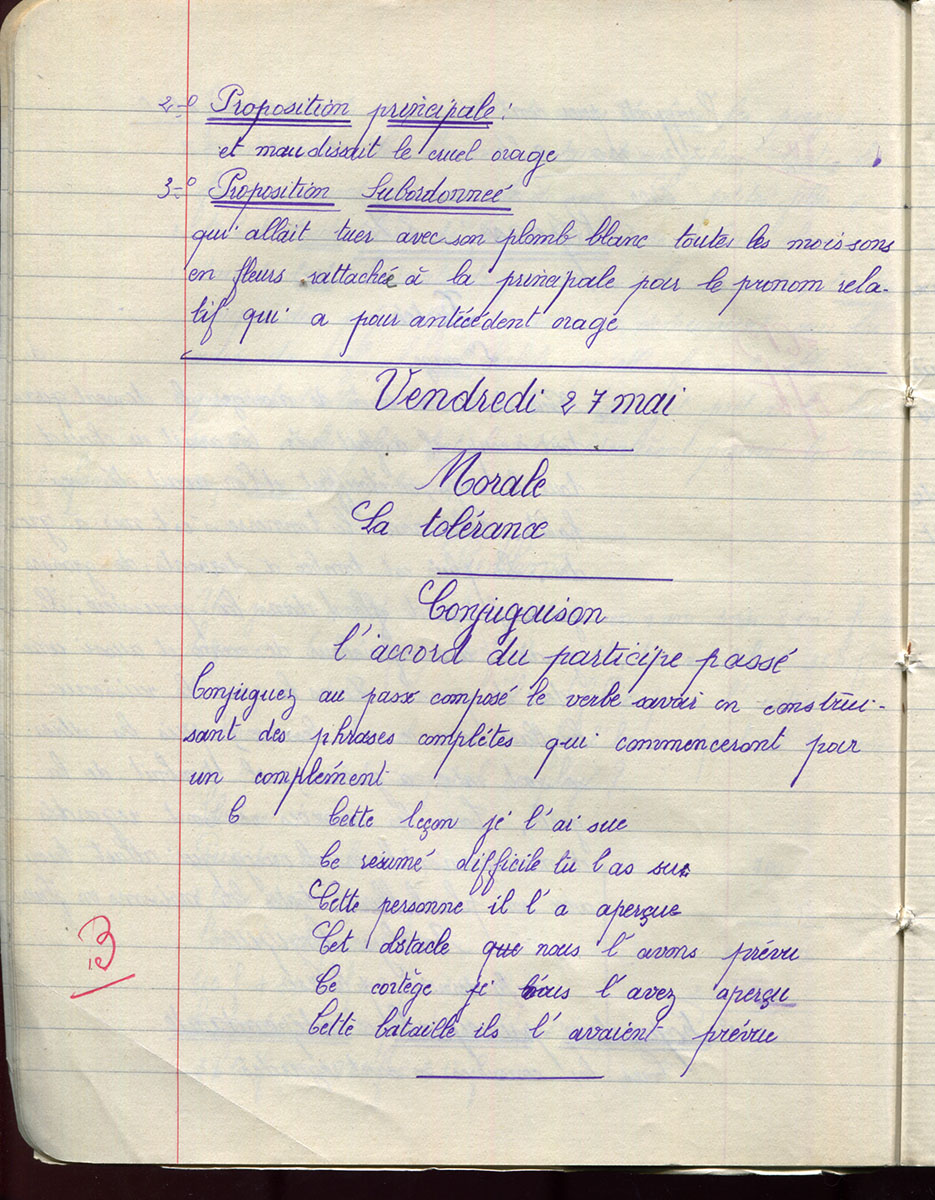 2-º Proposition principale :
et maudissait le cruel orage
3-º Proposition Subordonneé
qui allait tuer avec son plomb blanc toutes les moissons
en fleurs rattachée à la principale par le pronom rela-
tif qui a pour antécédent orage
Vendredi 27 mai
Morale
La tolérance
Conjugaison
l'accord du participe passé
Conjuguez au passé composé le verbe savoir en construi-
sant des phrases complètes qui commenceront par
un complément
C Cette leçon je l'ai sue
Ce résumé difficile tu l as su
Cette personne il l'a aperçue
Cet obstacle que nous l'avons prévu
Ce cortège je vous l'avez aperçu
Cette bataille ils l'avaient prévue
3